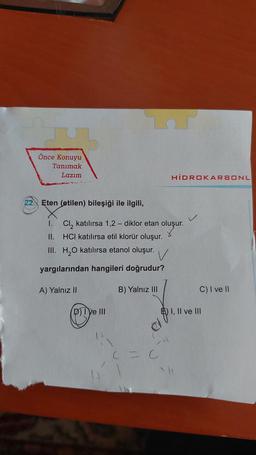 Önce Konuyu
Tanımak
Lazım
HİDROKARBONL
22. Eten (etilen) bileşiği ile ilgili,
I. Cl₂ katılırsa 1,2 – diklor etan oluşur.
II. HCl katılırsa etil klorür oluşur.
III. H₂O katılırsa etanol oluşur.
yargılarından hangileri doğrudur?
A) Yalnız II B) Yalnız III C) I ve II
D) I ve III E) I, II ve III
C = C